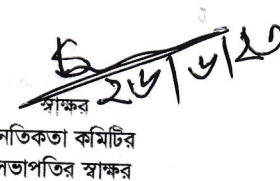 ২৬/৬/২৩
স্বাক্ষর
নতিকতা কমিটির
সভাপতির স্বাক্ষর